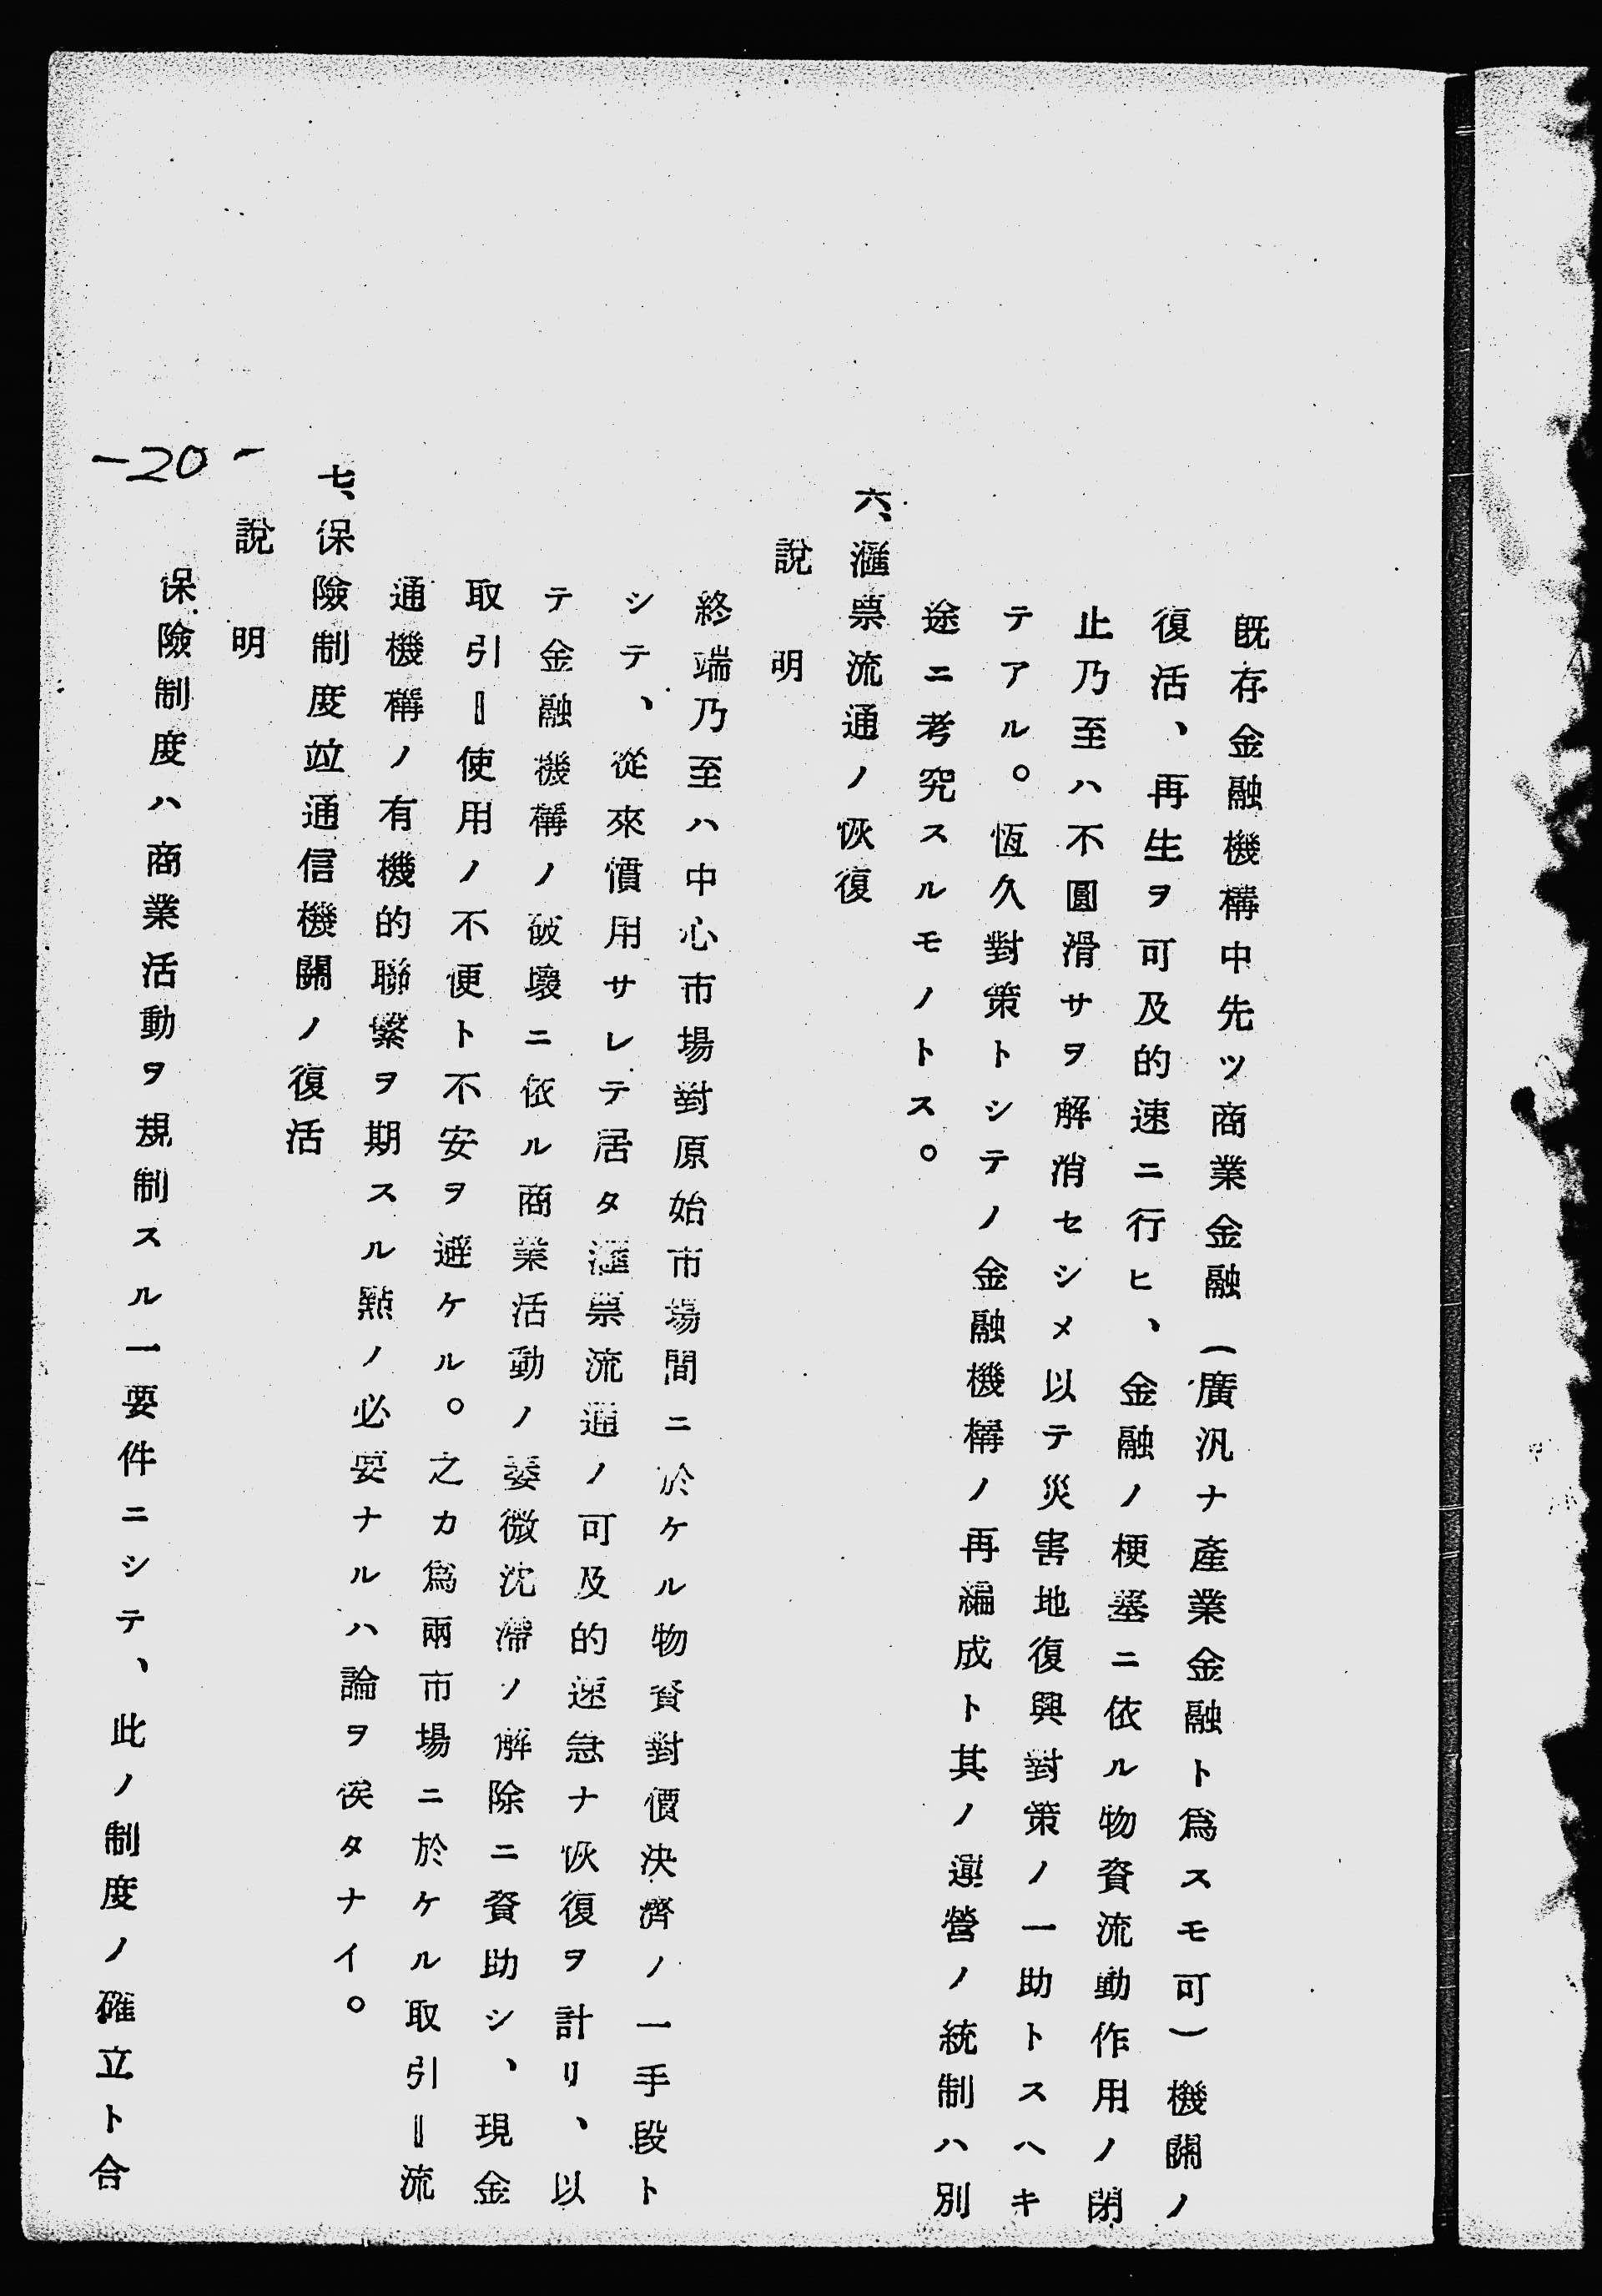 既存金融機構中先ツ商業金融（廣汎ナ產業金融ト爲スモ可）機關ノ
復活、再生ヲ可及的速ニ行ヒ、金融ノ梗塞ニ依ル物資流動作用ノ閉
止乃至ハ不圓滑サヲ解消セシメ以テ災害地復興對策ノ一助トスヘキ
テアル。恆久對策トシテノ金融機構ノ再編成ト其ノ運營ノ統制ハ別
途ニ考究スルモノトス。
六、滙票流通ノ恢復
說明
終端乃至ハ中心市場對原始市場間ニ於ケル物資對價決濟ノ一手段ト
シテ、從來慣用サレテ居タ滙票流通ノ可及的速急ナ恢復ヲ計リ、以
テ金融機構ノ破壞ニ依ル商業活動ノ萎微沈滯ノ解除ニ資助シ、現金
取引＝使用ノ不便ト不安ヲ避ケル。之カ爲兩市場ニ於ケル取引＝流
通機構ノ有機的聯繫ヲ期スル點ノ必要ナルハ論ヲ俟タナイ。
七、保險制度竝通信機關ノ復活
說明
保險制度ハ商業活動ヲ規制スル一要件ニシテ、此ノ制度ノ確立ト合
-20-